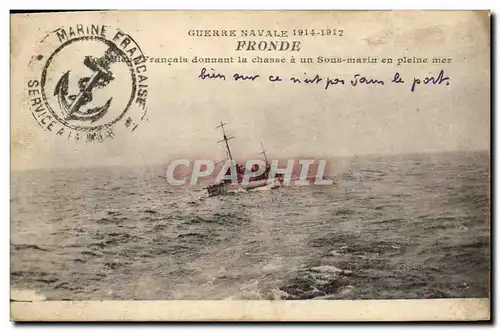 GUERRE NAVALE 1914-1917
FRONDE
Français donnant la chasse à un Sous-marin en pleine mer
bien sur ce n'est pas dans le port.
MARINE FRANÇAISE
SERVICE A LA MER
CPARAMA.COM